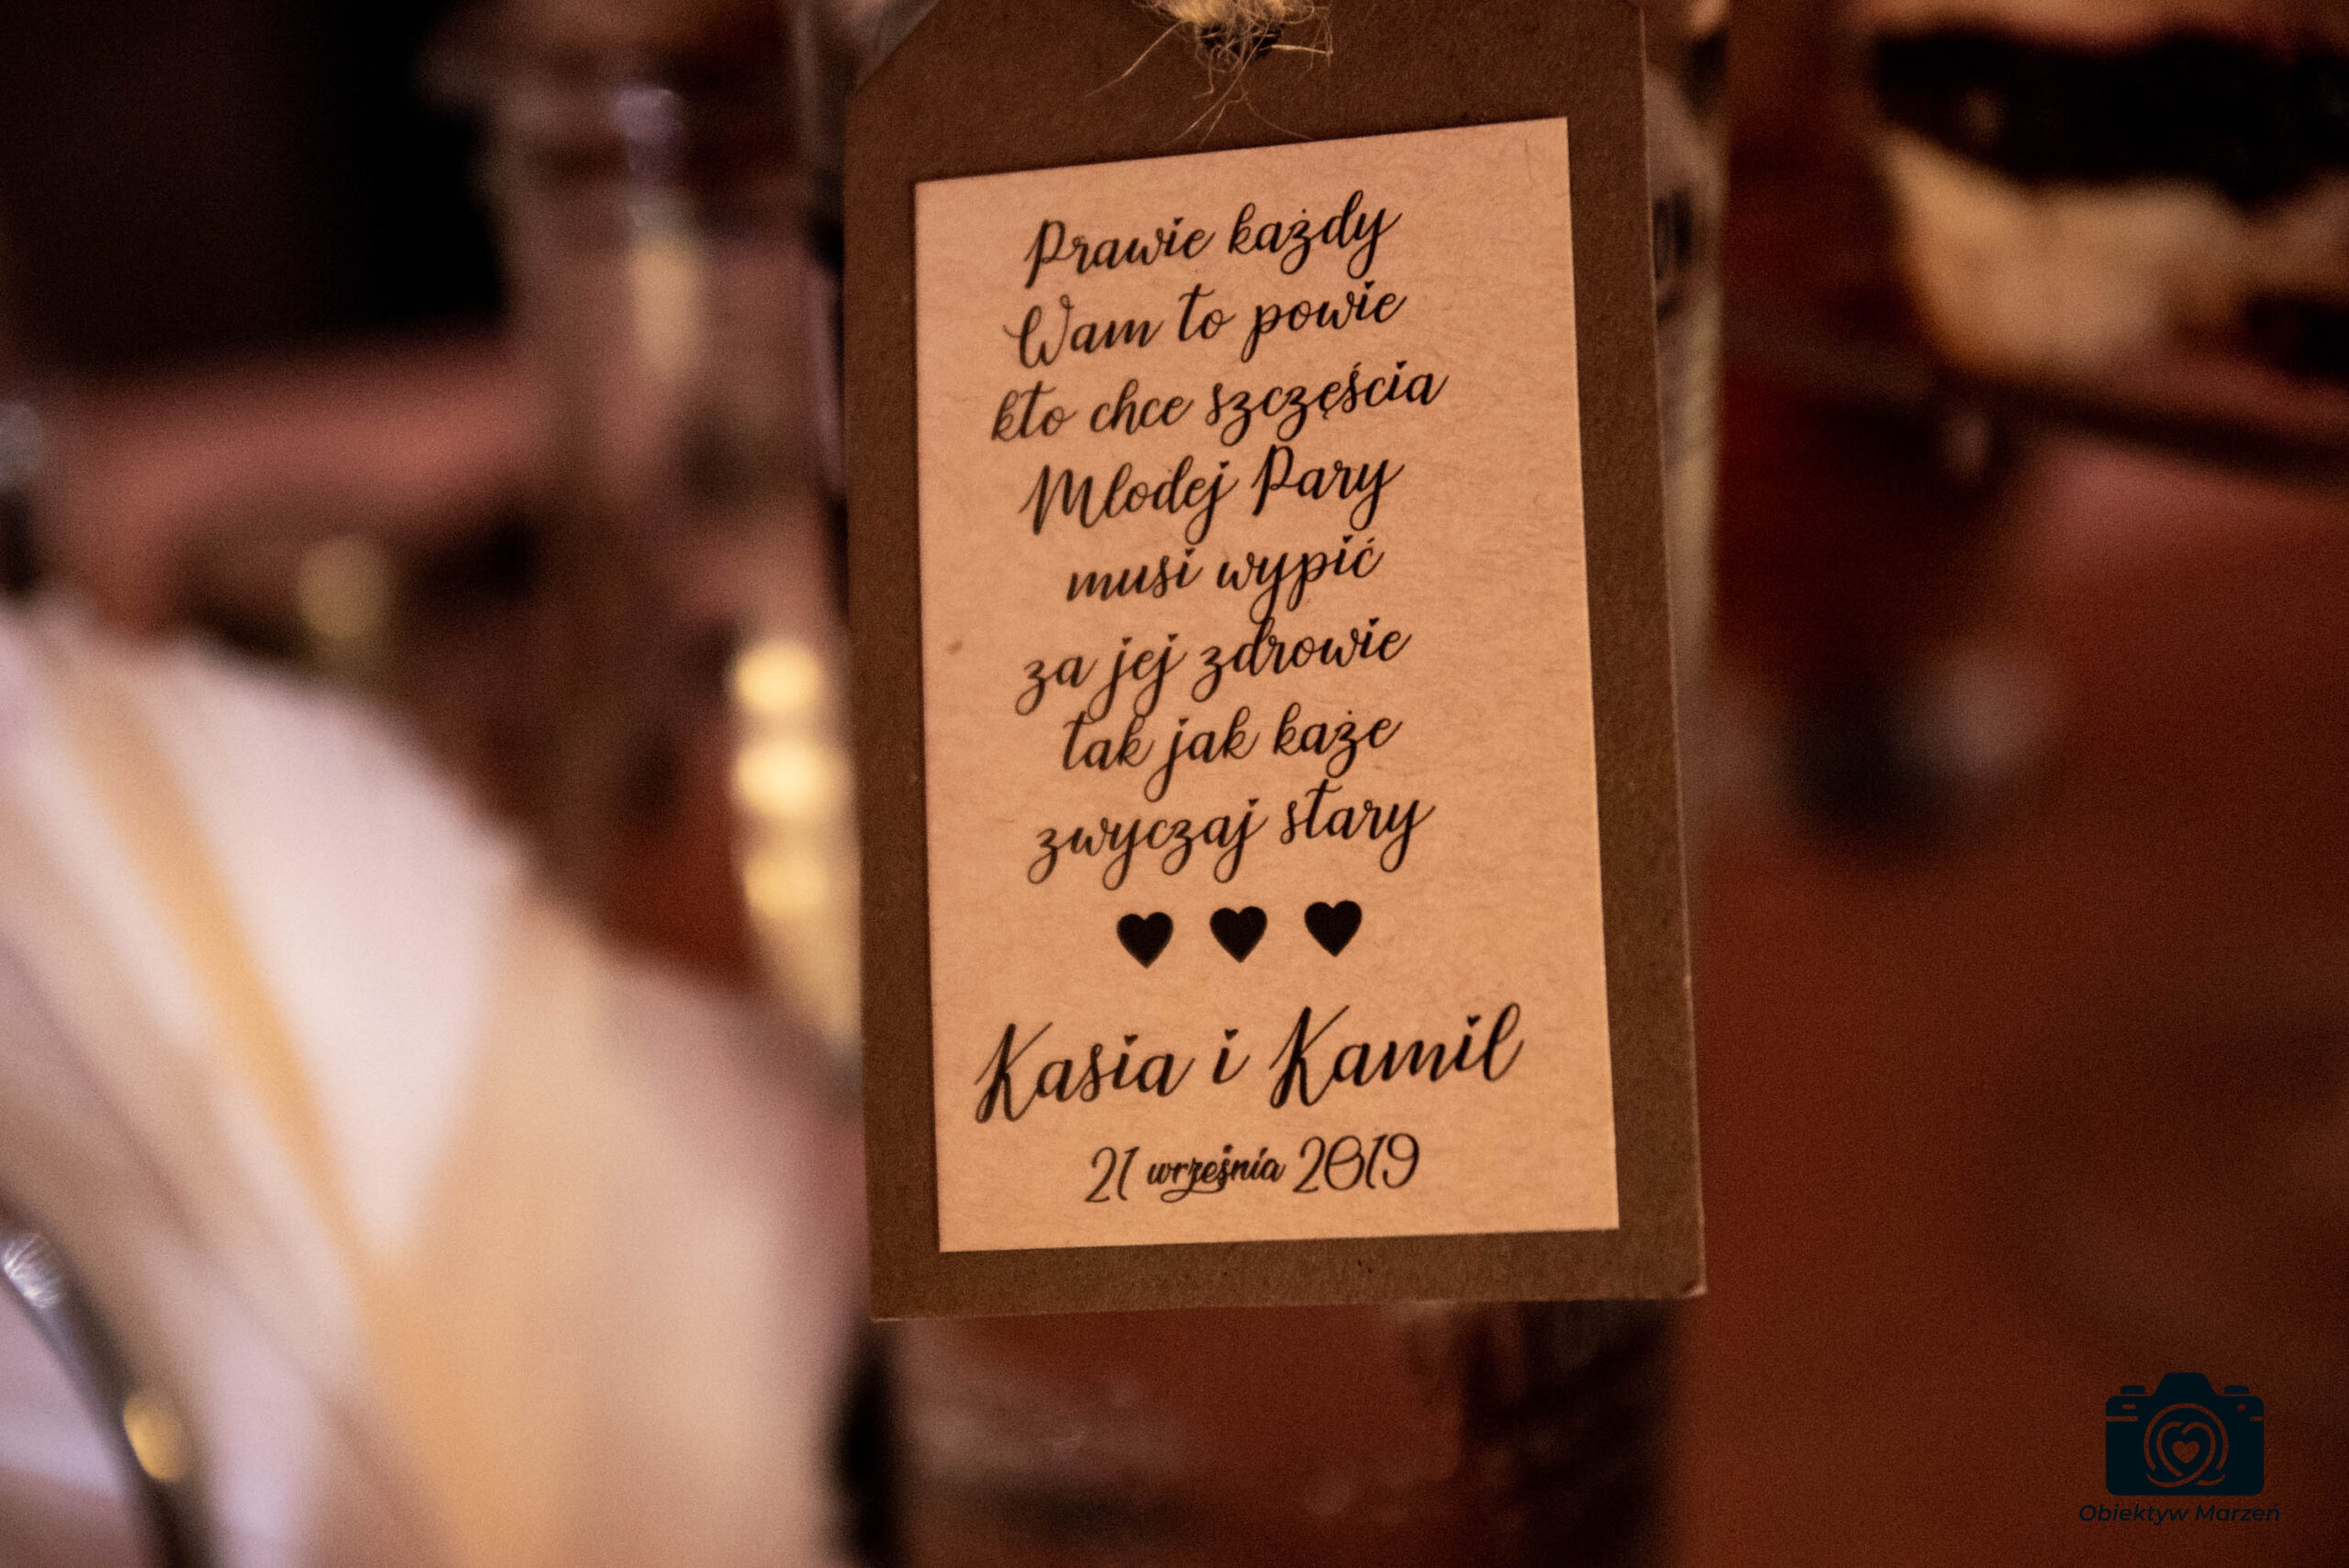 Prawie każdy
Wam to powie
kto chce szczęścia
Mlodej Pary
musi wypić
za jej zdrowie
tak jak każe
zwyczaj stary
Kasia i Kamil
21 września 2019
Obiektyw Marzen